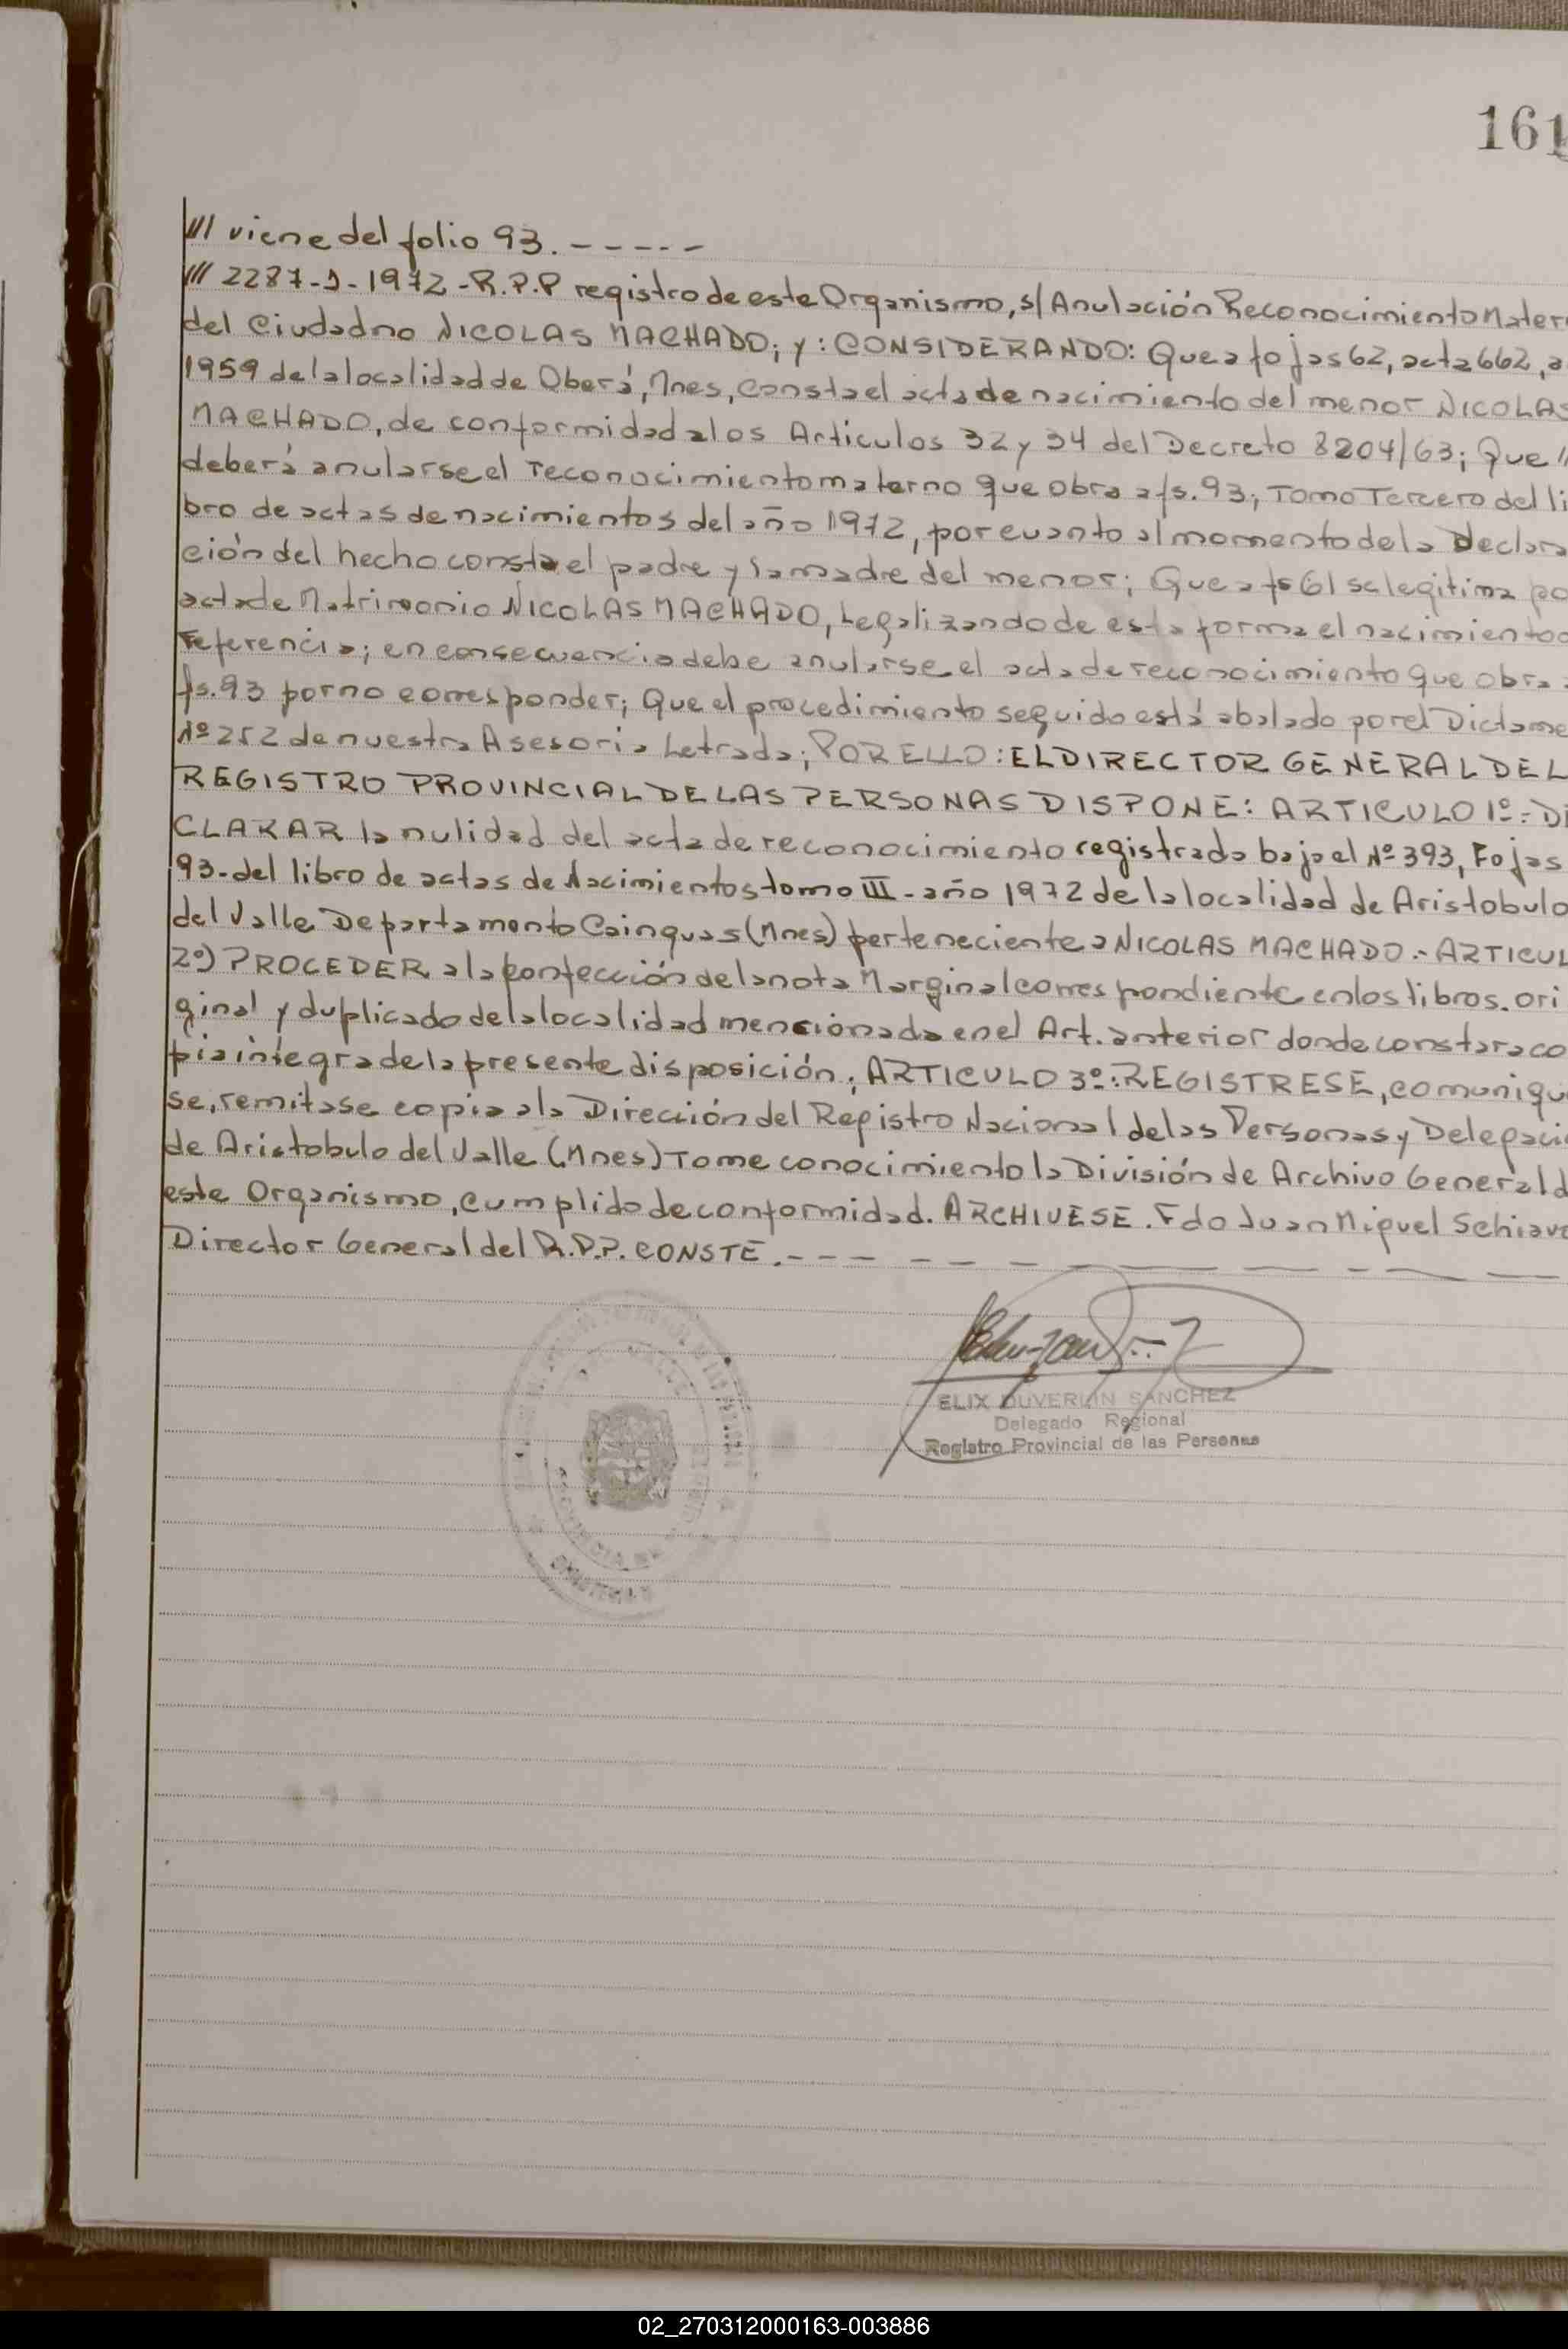 161
/// viene del folio 93. - - - - -
/// 2287-J-1972-R.P.P registro de este Organismo, s/ Anulación Reconocimiento Mater
del Ciudadno NICOLAS MACHADO; y: CONSIDERANDO: Que a fojas 62, acta 662, a
1959 de la localidad de Oberá, Mnes, consta el acta de nacimiento del menor NICOLAS
MACHADO, de conformidad a los Articulos 32 y 34 del Decreto 8204/63; Que //
deberá anularse el reconocimiento materno que obra a fs. 93, Tomo Tercero del li
bro de actas de nacimientos del año 1972, por cuanto al momento de la Declara
ción del hecho consta el padre y la madre del menor; Que a fs 61 se legitima po
acta de Matrimonio NICOLAS MACHADO, Legalizando de esta forma el nacimiento
referencia; en consecuencia debe anularse el acta de reconocimiento que obra
fs. 93 por no corresponder; Que el procedimiento seguido está abalado por el Dictame
Nº 252 de nuestra Asesoria Letrada; POR ELLO: EL DIRECTOR GENERAL DEL
REGISTRO PROVINCIAL DE LAS PERSONAS DISPONE: ARTICULO 1º.- DE
CLARAR la nulidad del acta de reconocimiento registrada bajo el Nº 393, Fojas
93- del libro de actas de Nacimientos tomo III - año 1972 de la localidad de Aristobulo
del Valle Departamento Cainguas (Mnes) perteneciente a NICOLAS MACHADO.- ARTICUL
2º) PROCEDER a la confección de la nota Marginal correspondiente en los libros. ori
ginal y duplicado de la localidad mencionada en el Art. anterior donde constara co
pia integra de la presente disposición; ARTICULO 3º: REGISTRESE, comuniqu
se, remitase copia a la Dirección del Registro Nacional de las Personas y Delegaci
de Aristobulo del Valle (Mnes) Tome conocimiento la División de Archivo General d
este Organismo, cumplido de conformidad. ARCHIVESE. Fdo Juan Miguel Schiavo
Director General del R.P.P. CONSTE. - - - - - - - - - - -
ELIX DUVERLIN SANCHEZ
Delegado Regional
Registro Provincial de las Personas
02_270312000163-003886